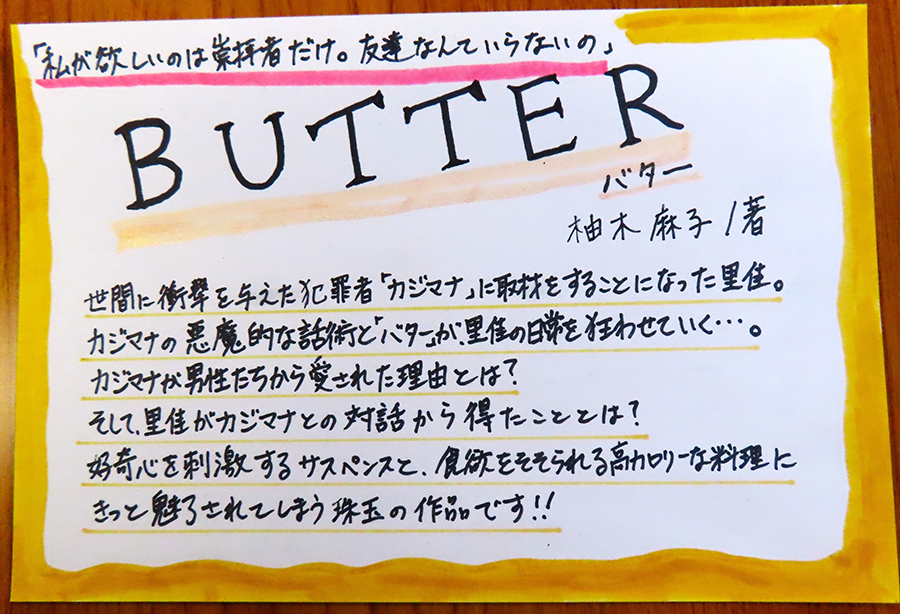 「私が欲しいのは崇拝者だけ。友達なんていらないの」
BUTTER
バター
柚木麻子/著
世間に衝撃を与えた犯罪者「カジマナ」に取材をすることになった里佳。
カジマナの悪魔的な話術と「バター」が、里佳の日常を狂わせていく…。
カジマナが男性たちから愛された理由とは?
そして、里佳がカジマナとの対話から得たこととは?
好奇心を刺激するサスペンスと、食欲をそそられる高カロリーな料理に
きっと魅了されてしまう珠玉の作品です!!